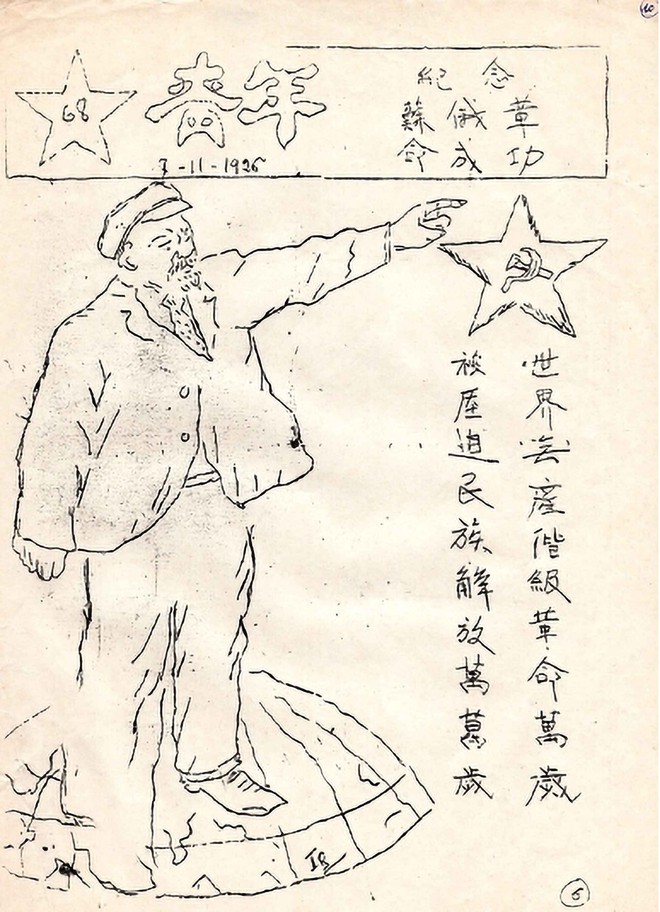 68
青年
7-11-1926
紀念
蘇俄革
命成功
世界無產階級革命萬歲
被压迫民族解放萬萬歲